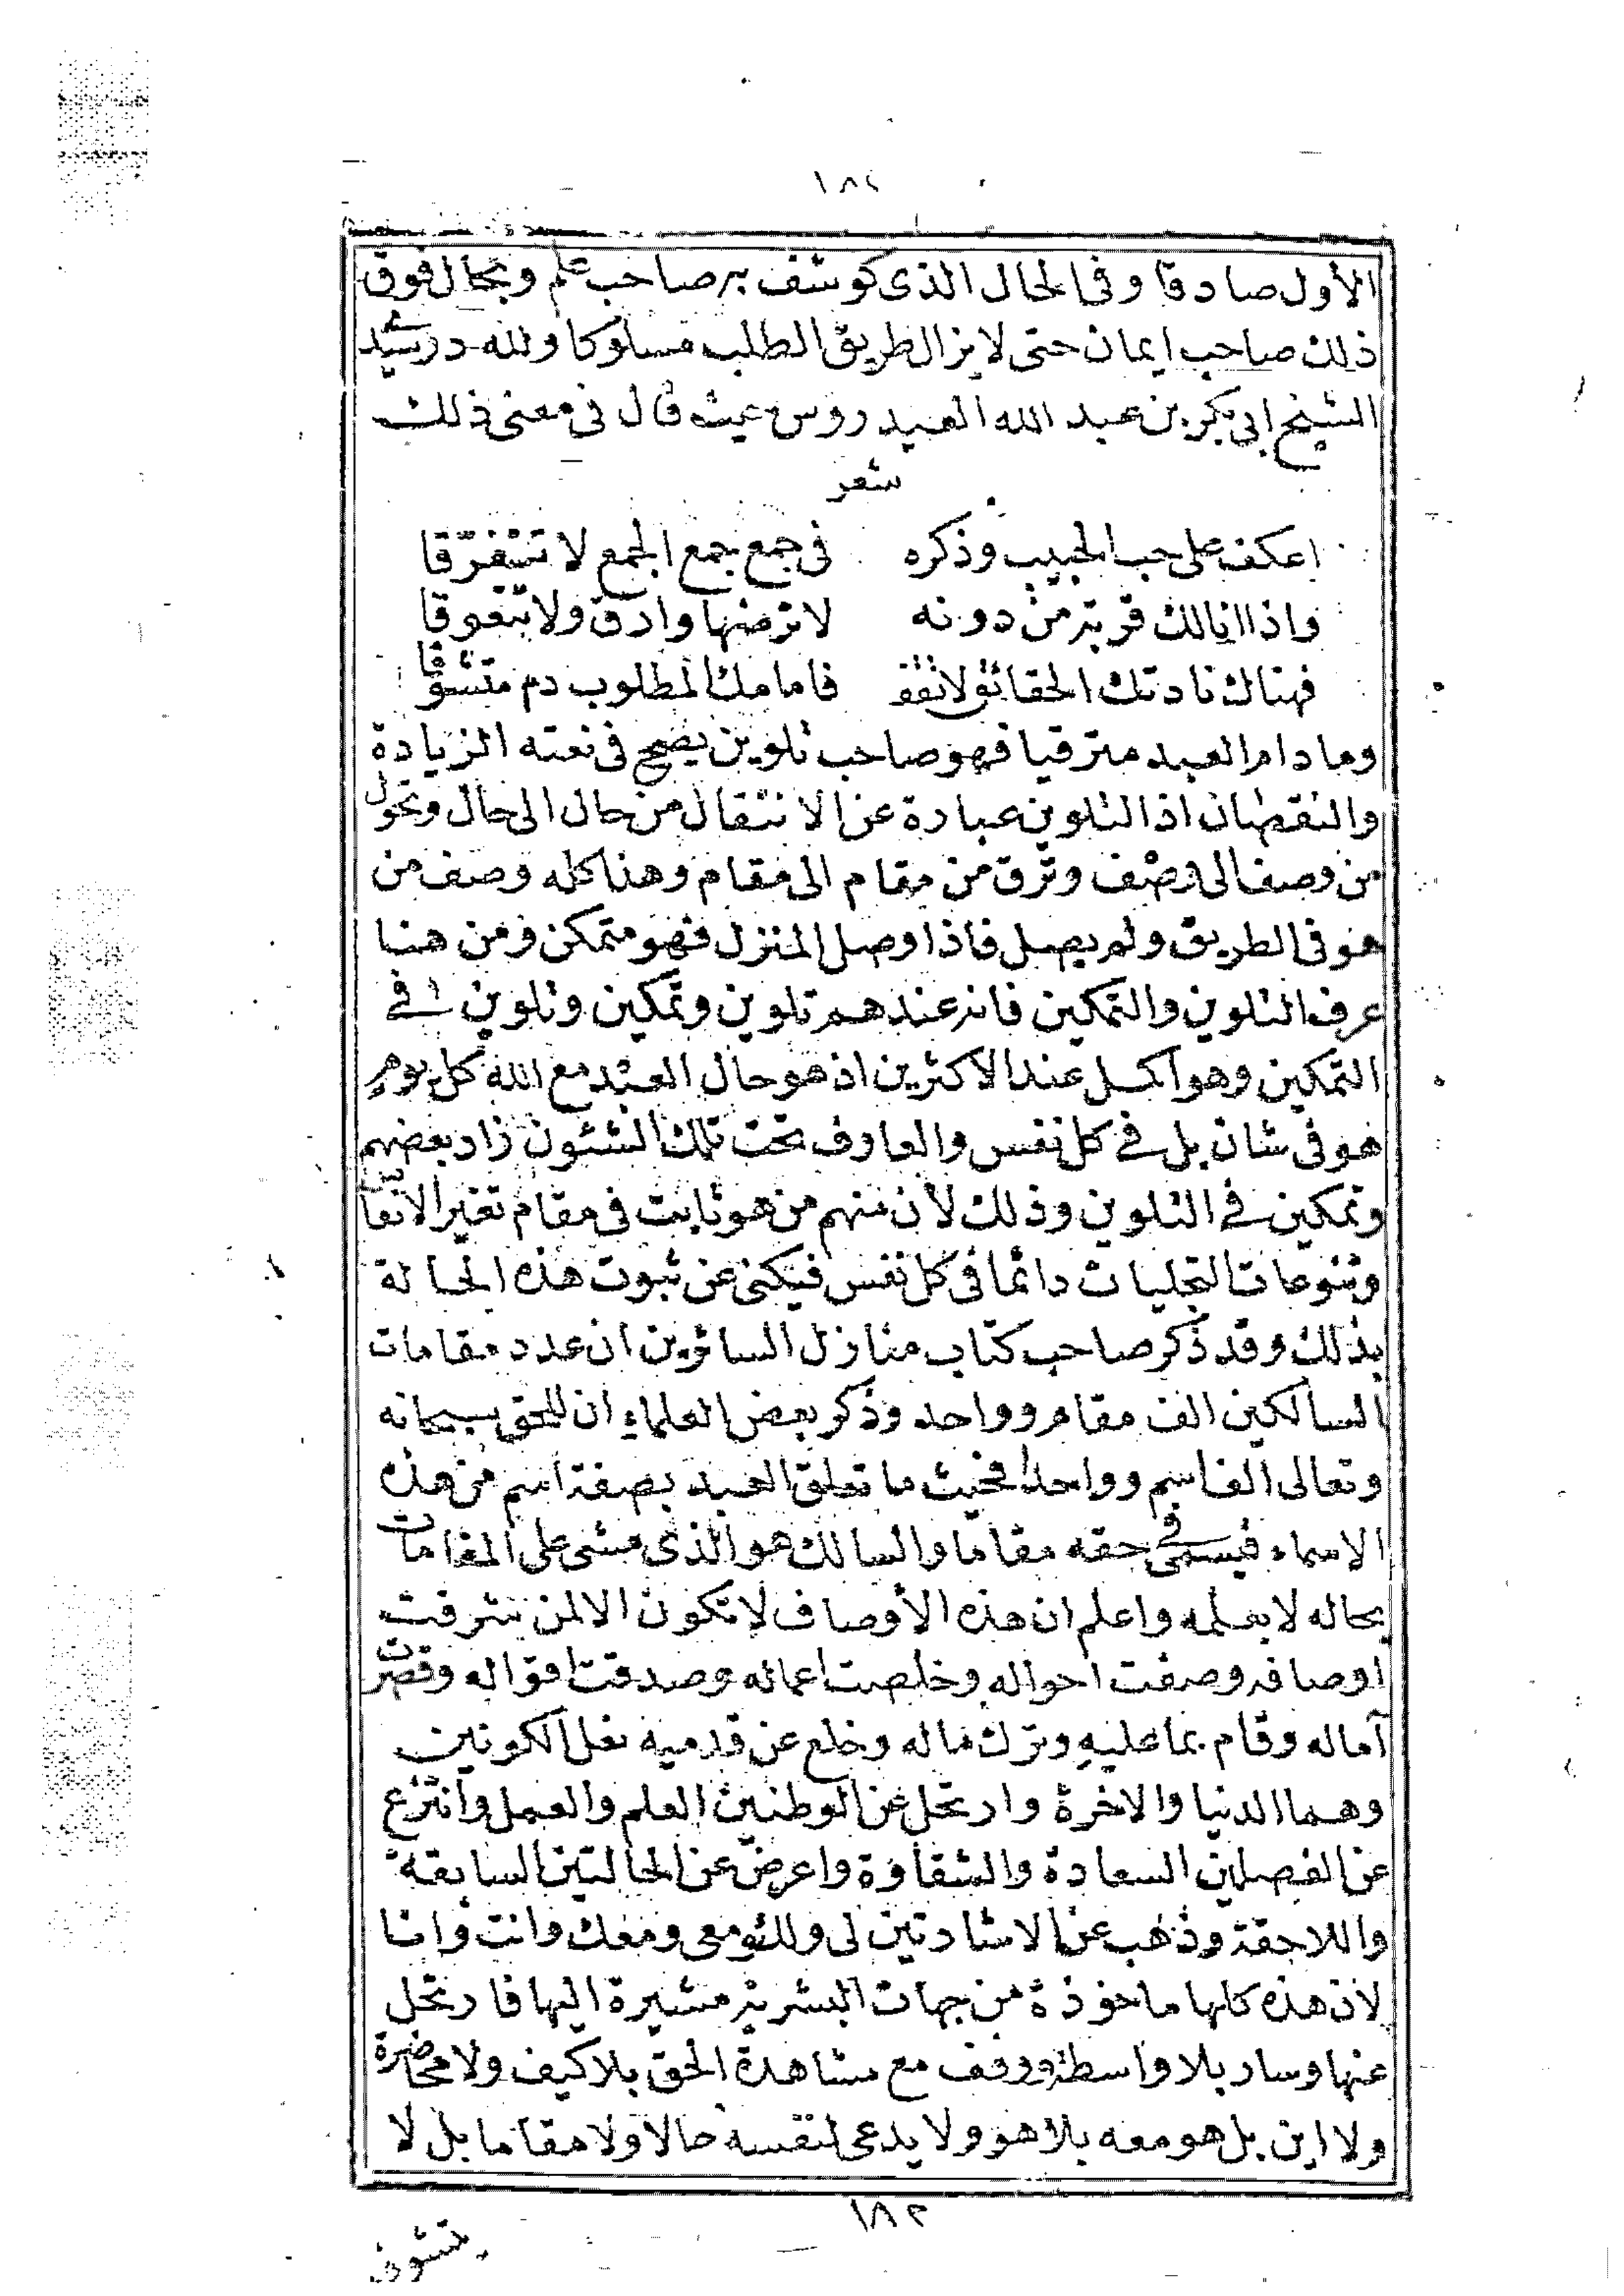 ١٨٢
الأول صادقا وفى الحال الذى كوشف به صاحب علم وبحال فوق
ذلك صاحب ايمان حتى لا يزال طريق الطلب مسلوكا ولله در سيد
الشيخ ابى بكر بن عبد الله العيد روس حيث قال فى معنى ذلك
شعر
اعكف على حب الحبيب وذكره فى جمع جمع الجمع لا تتفرقا
واذا انالك قربة من دونه لا ترضها وارق ولا تتعوقا
فهناك نادتك الحقائق لا تقف فامامك المطلوب دم متشوقا
وما دام العبد مترقيا فهو صاحب تلوين يصح فى نعته الزيادة
والنقصان اذ التلوين عبارة عن الانتقال من حال الى حال وتحول
من وصف الى وصف وترق من مقام الى مقام وهذا كله وصف من
هو فى الطريق ولم يصل فاذا وصل المنزل فهو متمكن ومن هنا
عرف التلوين والتمكين فانه عندهم تلوين وتمكين وتلوين فى
التمكين وهو اكمل عند الاكثرين اذ هو حال العبد مع الله كل يوم
هو فى شان بل فى كل نفس والعارف تحت تلك الشئون زاد بعضهم
وتمكين فى التلوين وذلك لأن منهم من هو ثابت فى مقام تغير الانفاس
وتنوعات التجليات دائما فى كل نفس فيكنى عن ثبوت هذه الحالة
بذلك وقد ذكر صاحب كتاب منازل السائرين ان عدد مقامات
السالكين الف مقام وواحد وذكر بعض العلماء ان للحق سبحانه
وتعالى الف اسم وواحدا فحيث ما تعلق العبد بصفة اسم من هذه
الاسماء فيسمى فى حقه مقاما والسالك هو الذى مشى على المقامات
بحاله لا بعلمه واعلم ان هذه الأوصاف لا تكون الا لمن شرفت
اوصافه وصفت احواله وخلصت اعماله وصدقت اقواله وقصرت
آماله وقام بما عليه وترك ماله وخلع عن قدميه نعل الكونين
وهما الدنيا والاخرة وارتحل عن الوطنين العلم والعمل وانتزع
عن الفصلين السعادة والشقاوة واعرض عن الحالتين السابقة
واللاحقة وذهب عن الاشارتين لى ولك ومعى ومعك وانت وانا
لان هذه كلها ماخوذة من جهات البشرية مشيرة اليها فارتحل
عنها وسار بلا واسطة ووقف مع مشاهدة الحق بلا كيف ولا محاضرة
ولا اين بل هو معه بلا هو ولا يدعى لنفسه حالا ولا مقاما بل لا
١٨٢
يتشوف